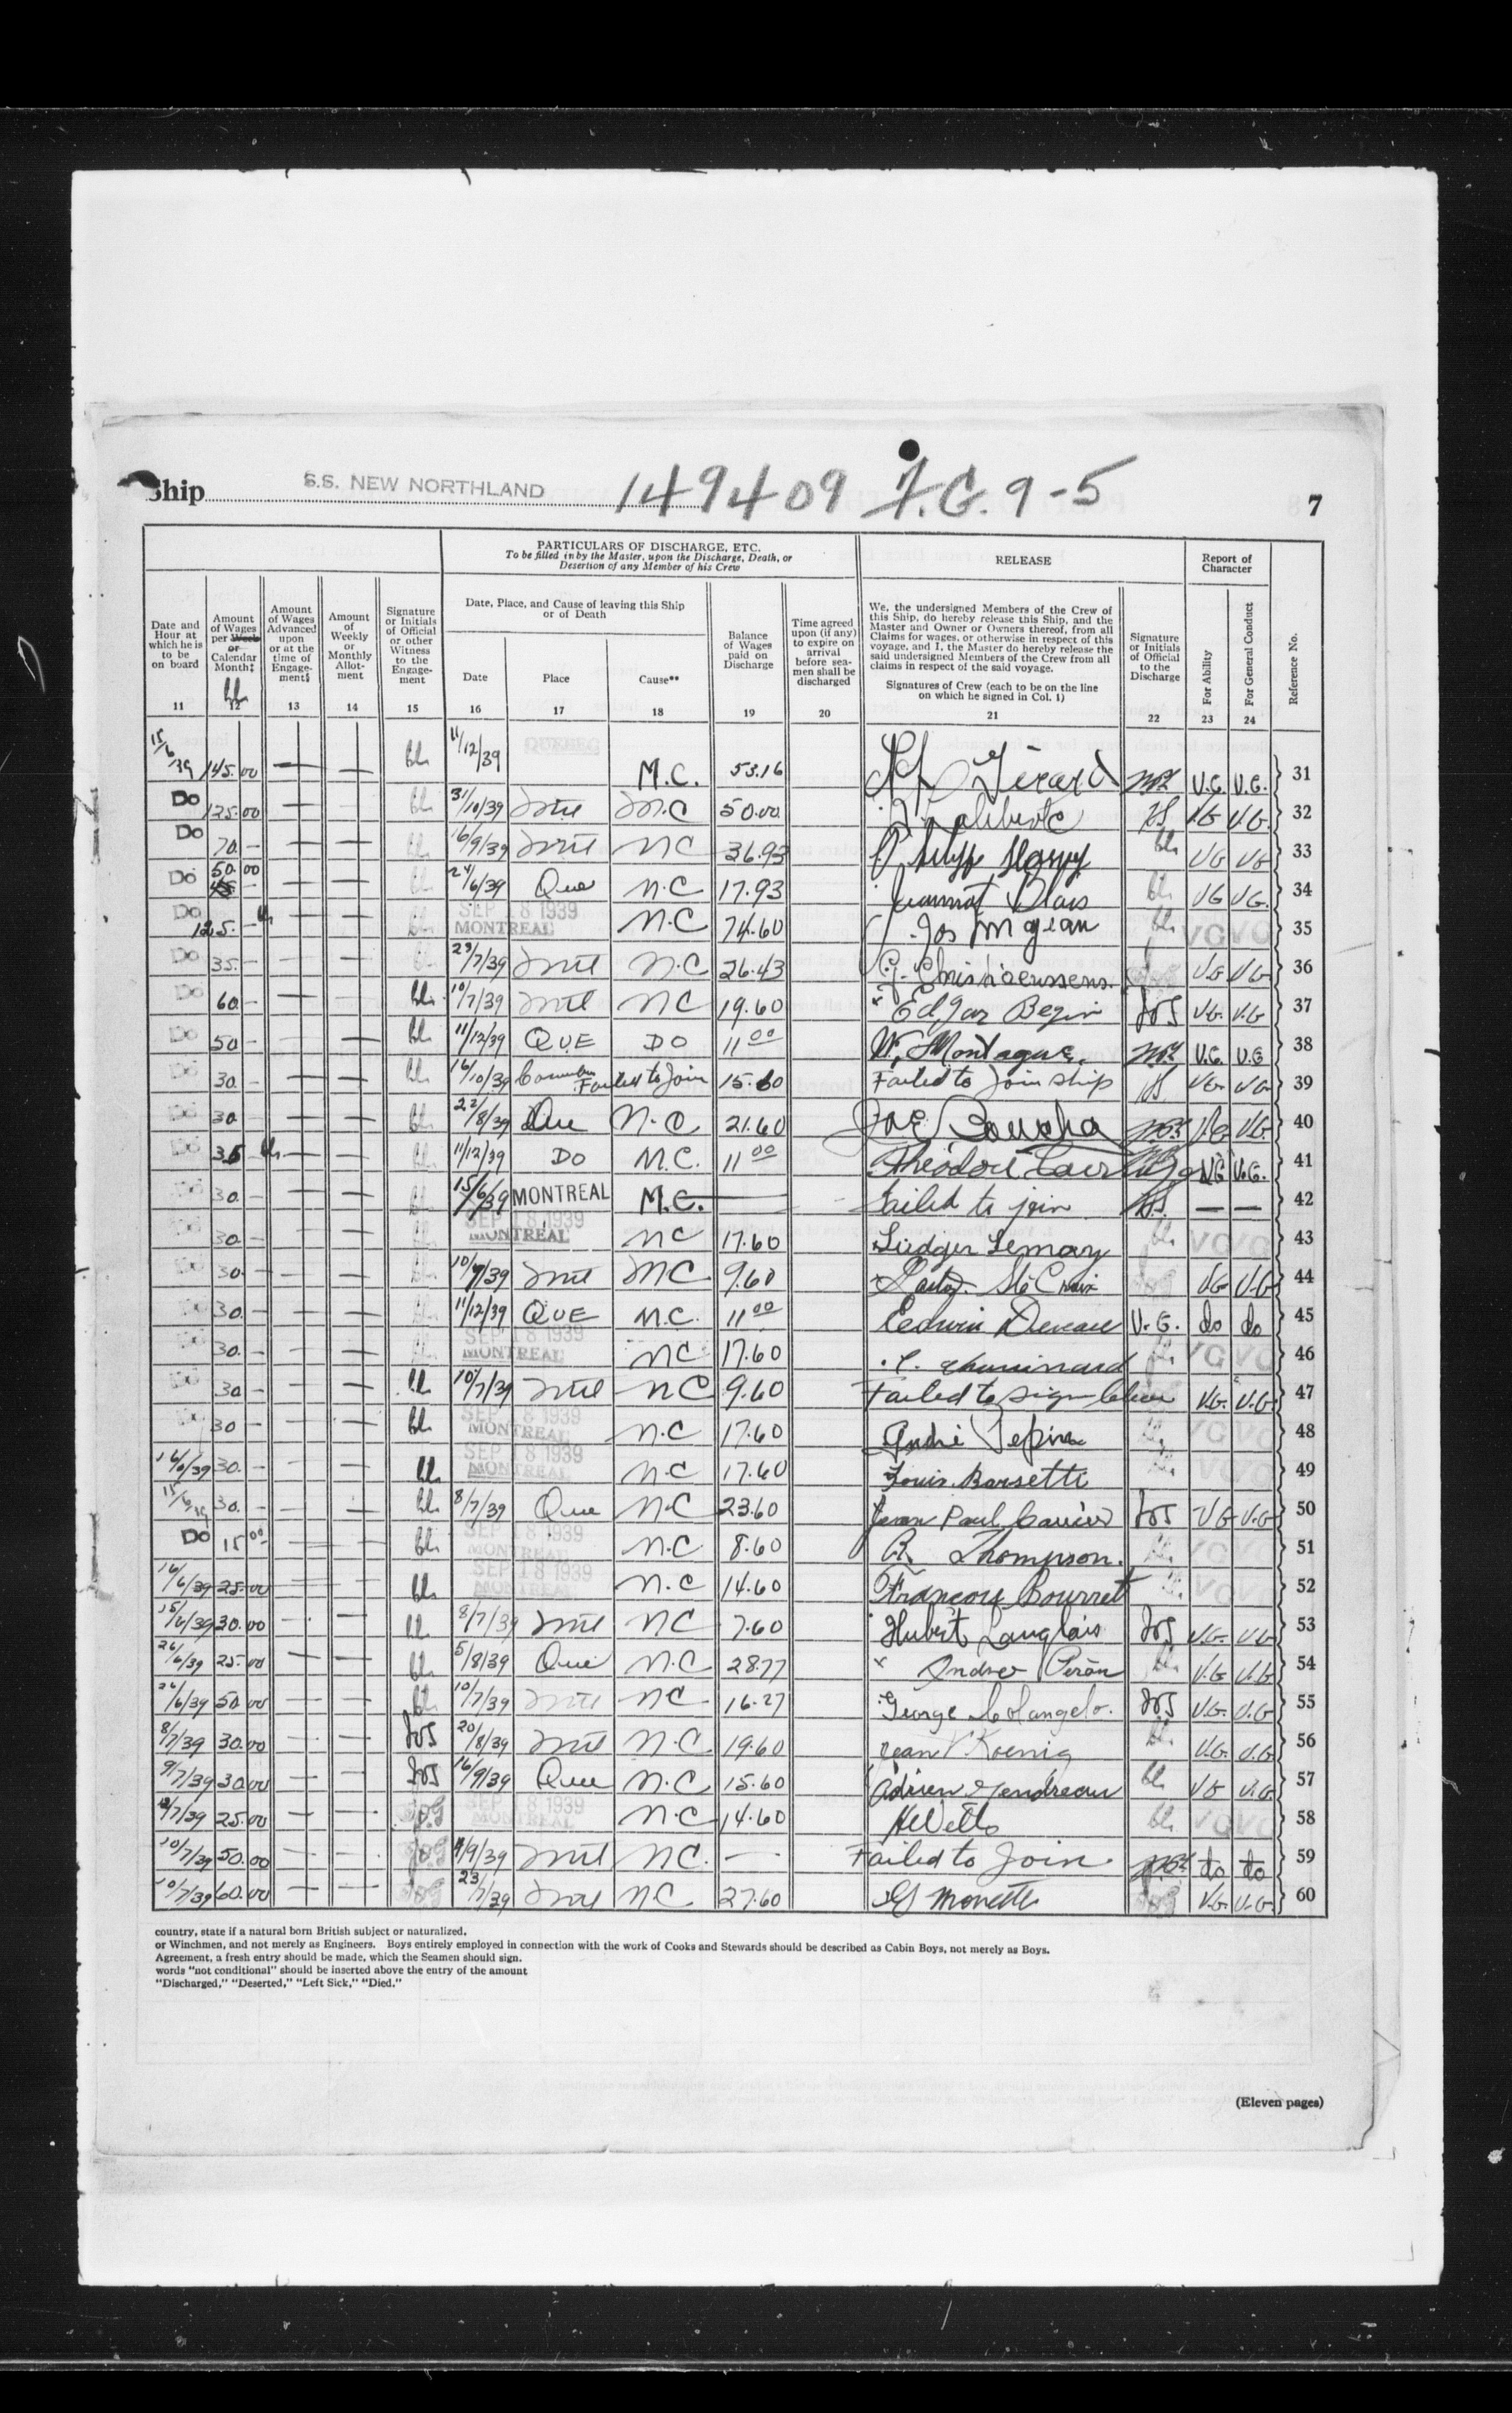 Ship S.S. NEW NORTHLAND 149409 F.C. 9-5 7
PARTICULARS OF DISCHARGE, ETC.
To be filled in by the Master, upon the Discharge, Death, or
Desertion of any Member of his Crew
RELEASE
Report of
Character
Date and
Hour at
which he is
to be
on board
Amount
of Wages
per Week
or
Calendar
Month‡
Amount
of Wages
Advanced
upon
or at the
time of
Engage-
ment§
Amount
of
Weekly
or
Monthly
Allot-
ment
Signature
or Initials
of Official
or other
Witness
to the
Engage-
ment
Date, Place, and Cause of leaving this Ship
or of Death
Date
Place
Cause**
Balance
of Wages
paid on
Discharge
Time agreed
upon (if any)
to expire on
arrival
before sea-
men shall be
discharged
We, the undersigned Members of the Crew of
this Ship, do hereby release this Ship, and the
Master and Owner or Owners thereof, from all
Claims for wages, or otherwise in respect of this
voyage, and I, the Master do hereby release the
said undersigned Members of the Crew from all
claims in respect of the said voyage.
Signatures of Crew (each to be on the line
on which he signed in Col. 1)
Signature
or Initials
of Official
to the
Discharge
For Ability
For General Conduct
Reference No.
11 12 13 14 15 16 17 18 19 20 21 22 23 24
15/6/39 145.00 — — 11/12/39 QUEBEC M.C. 53.16 Gérard V.G. V.G. 31
Do 125.00 — — 31/10/39 M.C 50.00 V.G V.G. 32
Do 70. — — — 16/9/39 MC 36.93 VG VG 33
Do 50.00 — — 24/6/39 Que M.C 17.93 Blais VG VG. 34
Do 125. — — — SEP 18 1939 MONTREAL M.C 74.60 Jos VG VG 35
Do 35. — — — 29/7/39 M.C 26.43 V.G V.G 36
Do 60. — — — 10/7/39 MC 19.60 Edgar Begin V.G. V.G 37
Do 50 — — — 11/12/39 QUE DO 11 00 W. Montague. V.G. V.G 38
Do 30. — — — 16/10/39 Failed to Join 15.60 Failed to Join ship VG. VG 39
Do 30 — — — 22/8/39 Que M.C. 21.60 Joe VG VG. 40
Do 35 — — 11/12/39 DO M.C. 11 00 Théodore VG V.G. 41
Do 30. — — — 15/6/39 MONTREAL M.C. — Failed to join — — 42
Do 30. — — — SEP 18 1939 MONTREAL MC 17.60 Ludger Lemay VG VG 43
Do 30. — — — 10/7/39 MC 9.60 VG V.G 44
Do 30. — — — 11/12/39 QUE M.C. 11 00 Edwin V.G. do do 45
Do 30. — — — SEP 18 1939 MONTREAL MC 17.60 VG VG 46
Do 30 — — — 10/7/39 MC 9.60 Failed to sign V.G. V.G. 47
Do 30 — — — SEP 18 1939 MONTREAL M.C 17.60 André Pepin VG VG 48
16/6/39 30. — — — SEP 18 1939 MONTREAL M.C 17.60 Louis Barsette VG VG 49
15/6/39 30. — — — 8/7/39 Que M.C 23.60 Jean Paul Carrier VG V.G 50
Do 15 00 — — SEP 18 1939 MONTREAL M.C 8.60 R. Thompson. VG VG 51
16/6/39 25.00 — — SEP 18 1939 MONTREAL M.C 14.60 Francois Bourret VG VG 52
15/6/39 30.00 — — 8/7/39 MC 7.60 Hubert Langlais V.G. V.G 53
26/6/39 25.00 — — 5/8/39 Que M.C 28.77 V.G V.G 54
26/6/39 50 00 — — 10/7/39 MC 16.27 George Colangelo. V.G. V.G 55
8/7/39 30.00 — — 20/8/39 M.C. 19.60 Jean Koenig V.G. V.G 56
9/7/39 30.00 — — 16/9/39 Que M.C 15.60 Adrien Gendreau VG V.G 57
25.00 — — SEP 18 1939 MONTREAL M.C 14.60 VG VG 58
10/7/39 50.00 — — MC. — Failed to Join do do 59
10/7/39 60.00 — — 23/7/39 M.C. 27.60 G Monette V.G. V.G. 60
country, state if a natural born British subject or naturalized,
or Winchmen, and not merely as Engineers. Boys entirely employed in connection with the work of Cooks and Stewards should be described as Cabin Boys, not merely as Boys.
Agreement, a fresh entry should be made, which the Seamen should sign.
words "not conditional" should be inserted above the entry of the amount
"Discharged," "Deserted," "Left Sick," "Died."
(Eleven pages)